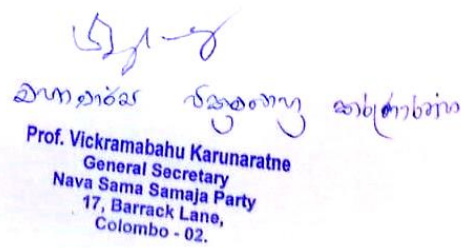 මහාචාර්ය වික්‍රමබාහු කරුණාරත්න
Prof. Vickramabahu Karunaratne
General Secretary
Nava Sama Samaja Party
17, Barrack Lane,
Colombo - 02.